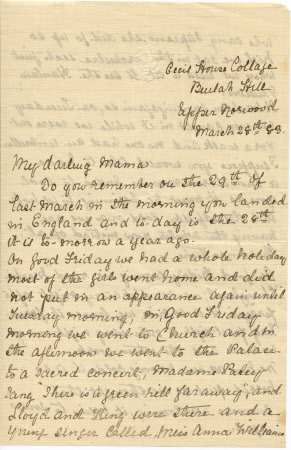 Cecil House Collage
Beulah Hill
Upper Norwood
March 28th 83.
My darling Mama
Do you remember on the 29th of
last March in the morning you landed
in England and to day is the 28th
it is to-morrow a year ago.
On Good Friday we had a whole holiday
most of the girls went home and did
not put in an appearance again until
Tuesday morning, on Good Friday
morning we went to Church and in
the afternoon we went to the Palace
to a sacred concert, Madame Patey
sang "There is a green hill far away", and
Lloyd and King were there and a
young singer called Miss Anna Williams